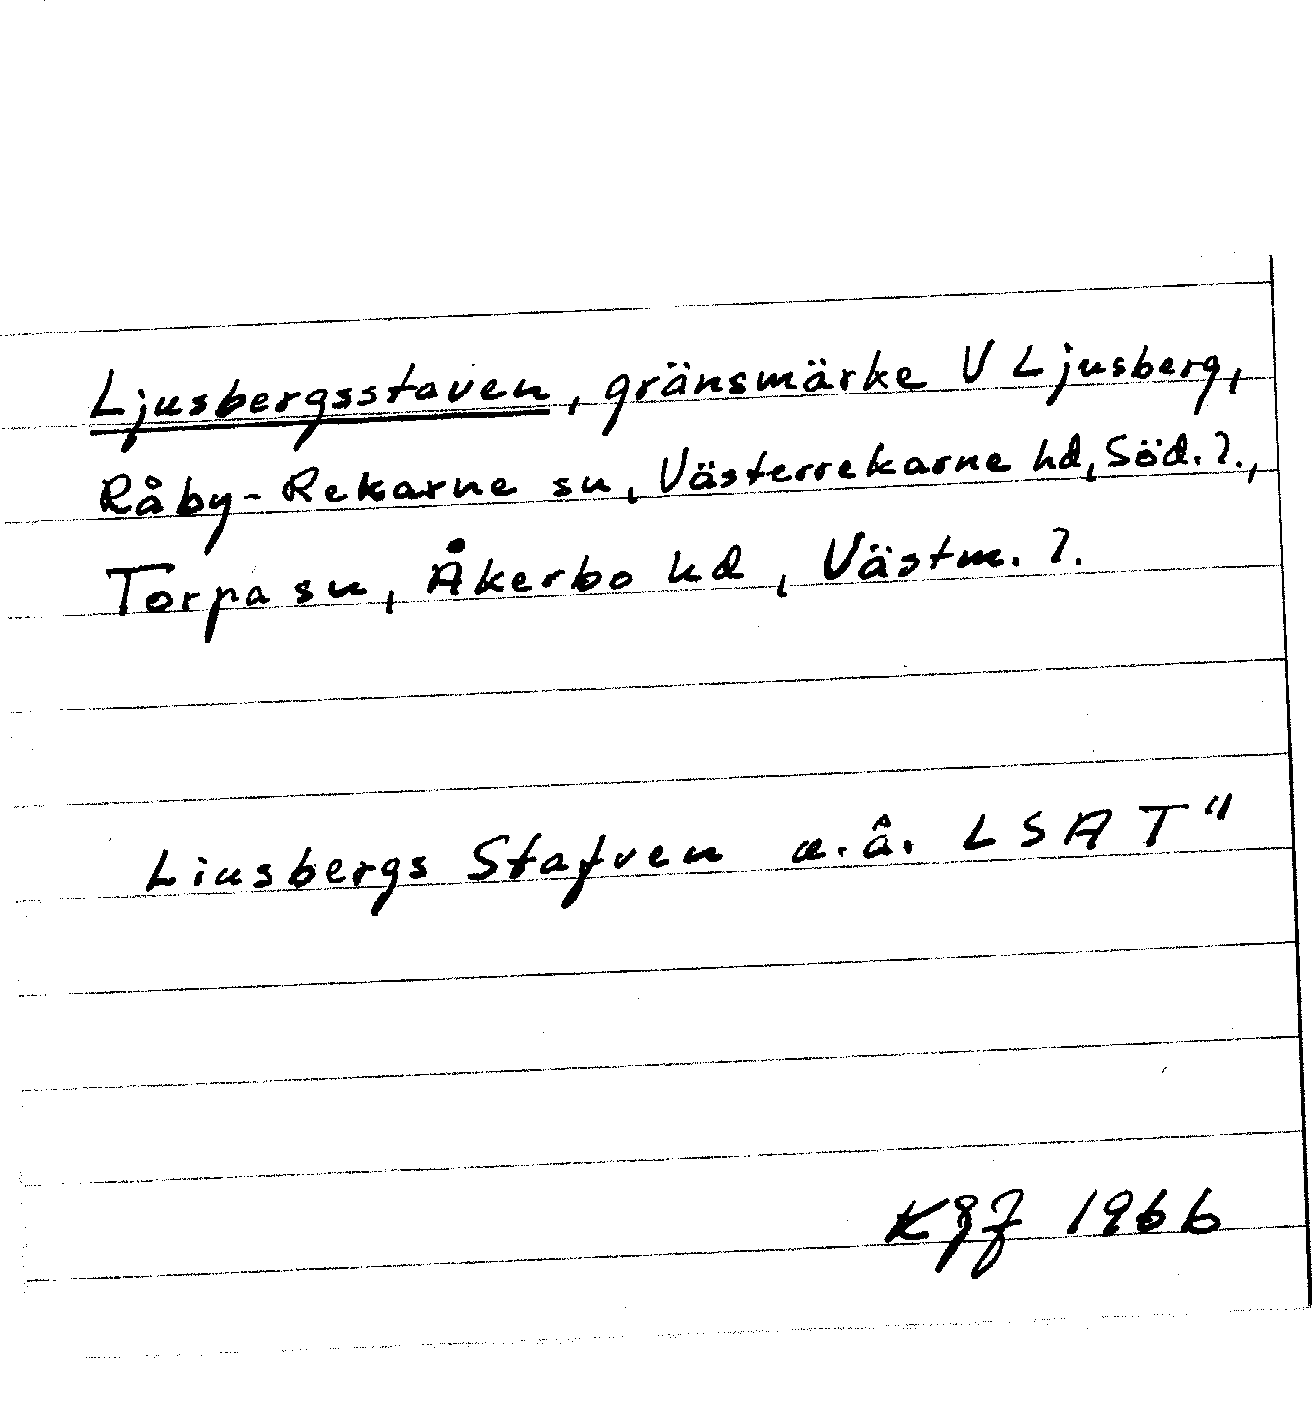 Ljusbergsstaven, gränsmärke V Ljusberg,
Råby-Rekarne sn, Västerrekarne hd, Söd. l.,
Torpa sn, Åkerbo hd, Västm. l.
Liusbergs Stafven u.å. LSA T"
1966